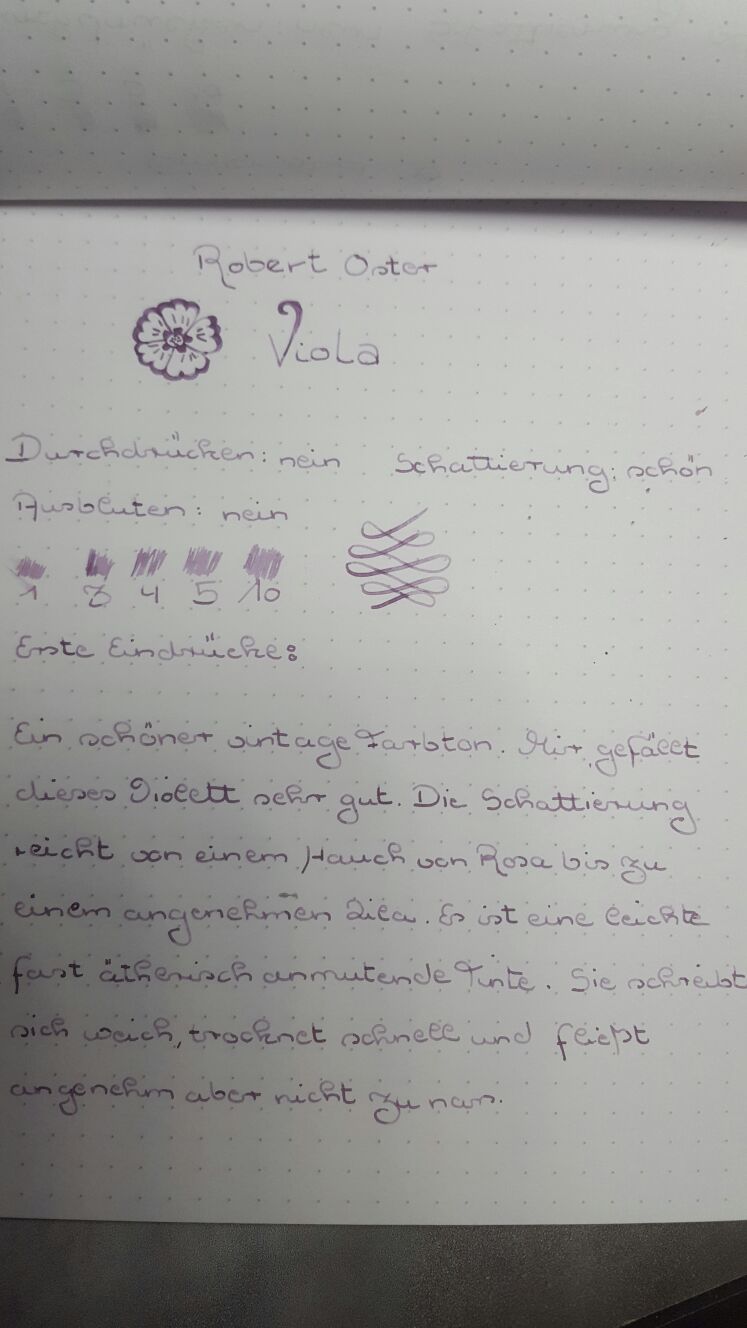 Robert Oster
Viola
Durchdrücken: nein Schattierung: schön
Ausbluten: nein
1 3 4 5 10
Erste Eindrücke:
Ein schöner vintage Farbton. Mir gefällt
dieses Violett sehr gut. Die Schattierung
reicht von einem Hauch von Rosa bis zu
einem angenehmen Lila. Es ist eine leichte
fast ätherisch anmutende Tinte. Sie schreibt
sich weich, trocknet schnell und fließt
angenehm aber nicht zu nass.